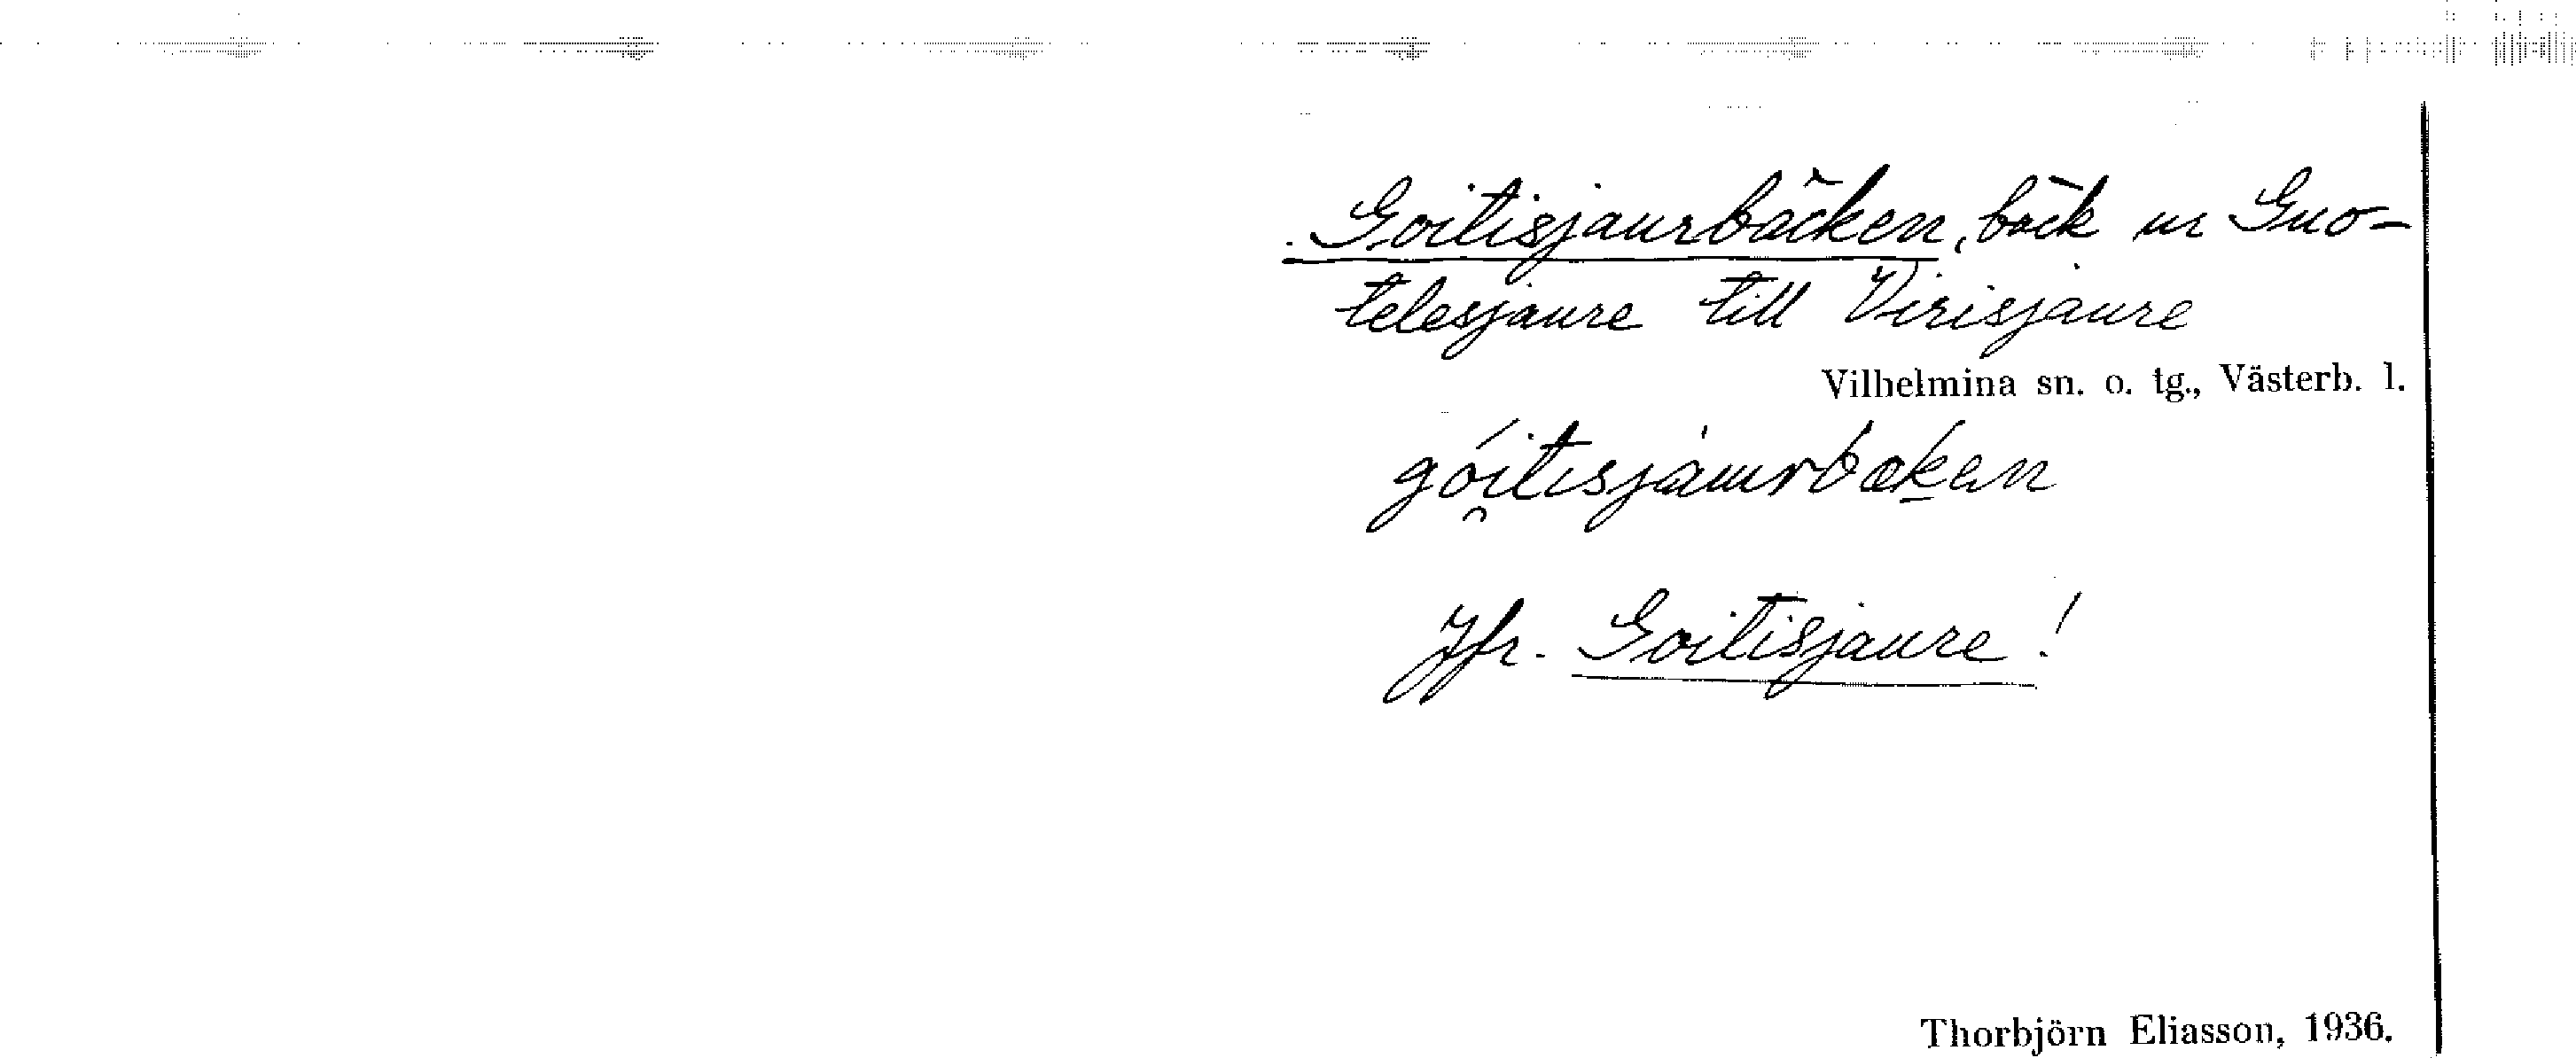 Goitisjaurbäcken, bäck ur Guo-
telesjaure till Virisjaure
Vilhelmina sn. o. tg., Västerb. l.
góitisjàurbækən
Jfr. Goitisjaure!
Thorbjörn Eliasson, 1936.